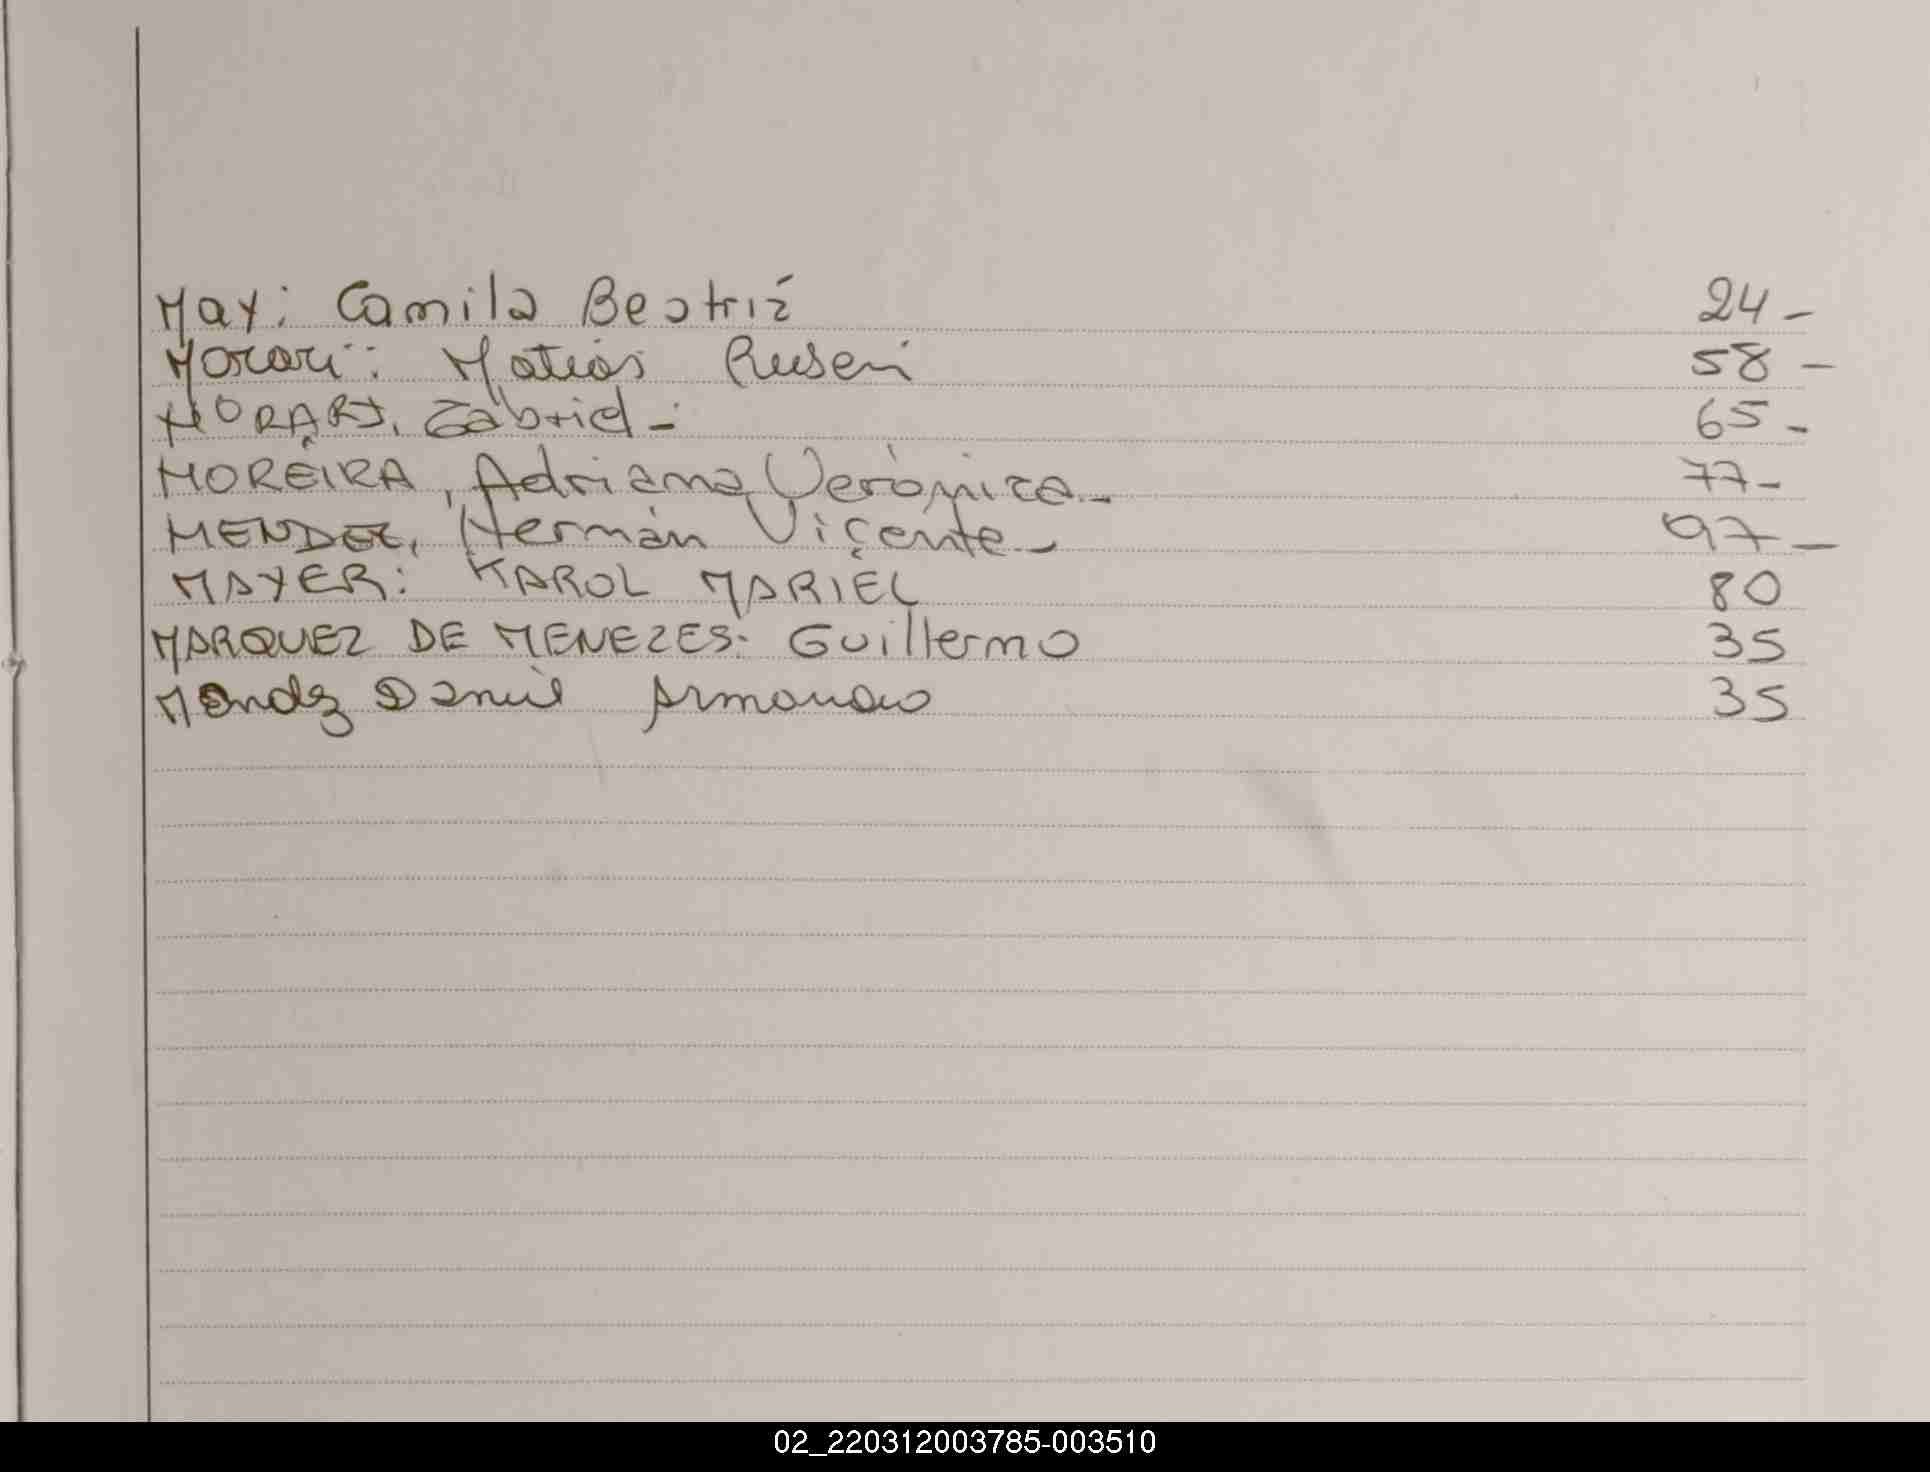 May: Camila Beatriz 24-
Morari: Matias Ruben 58-
MORARI, Gabriel- 65-
MOREIRA, Adriana Verónica- 77-
MENDEZ, Hernán Vicente- 97-
MAYER: KAROL MARIEL 80
MARQUEZ DE MENEZES: Guillermo 35
Mendez Daniel Armando 35
02_220312003785-003510